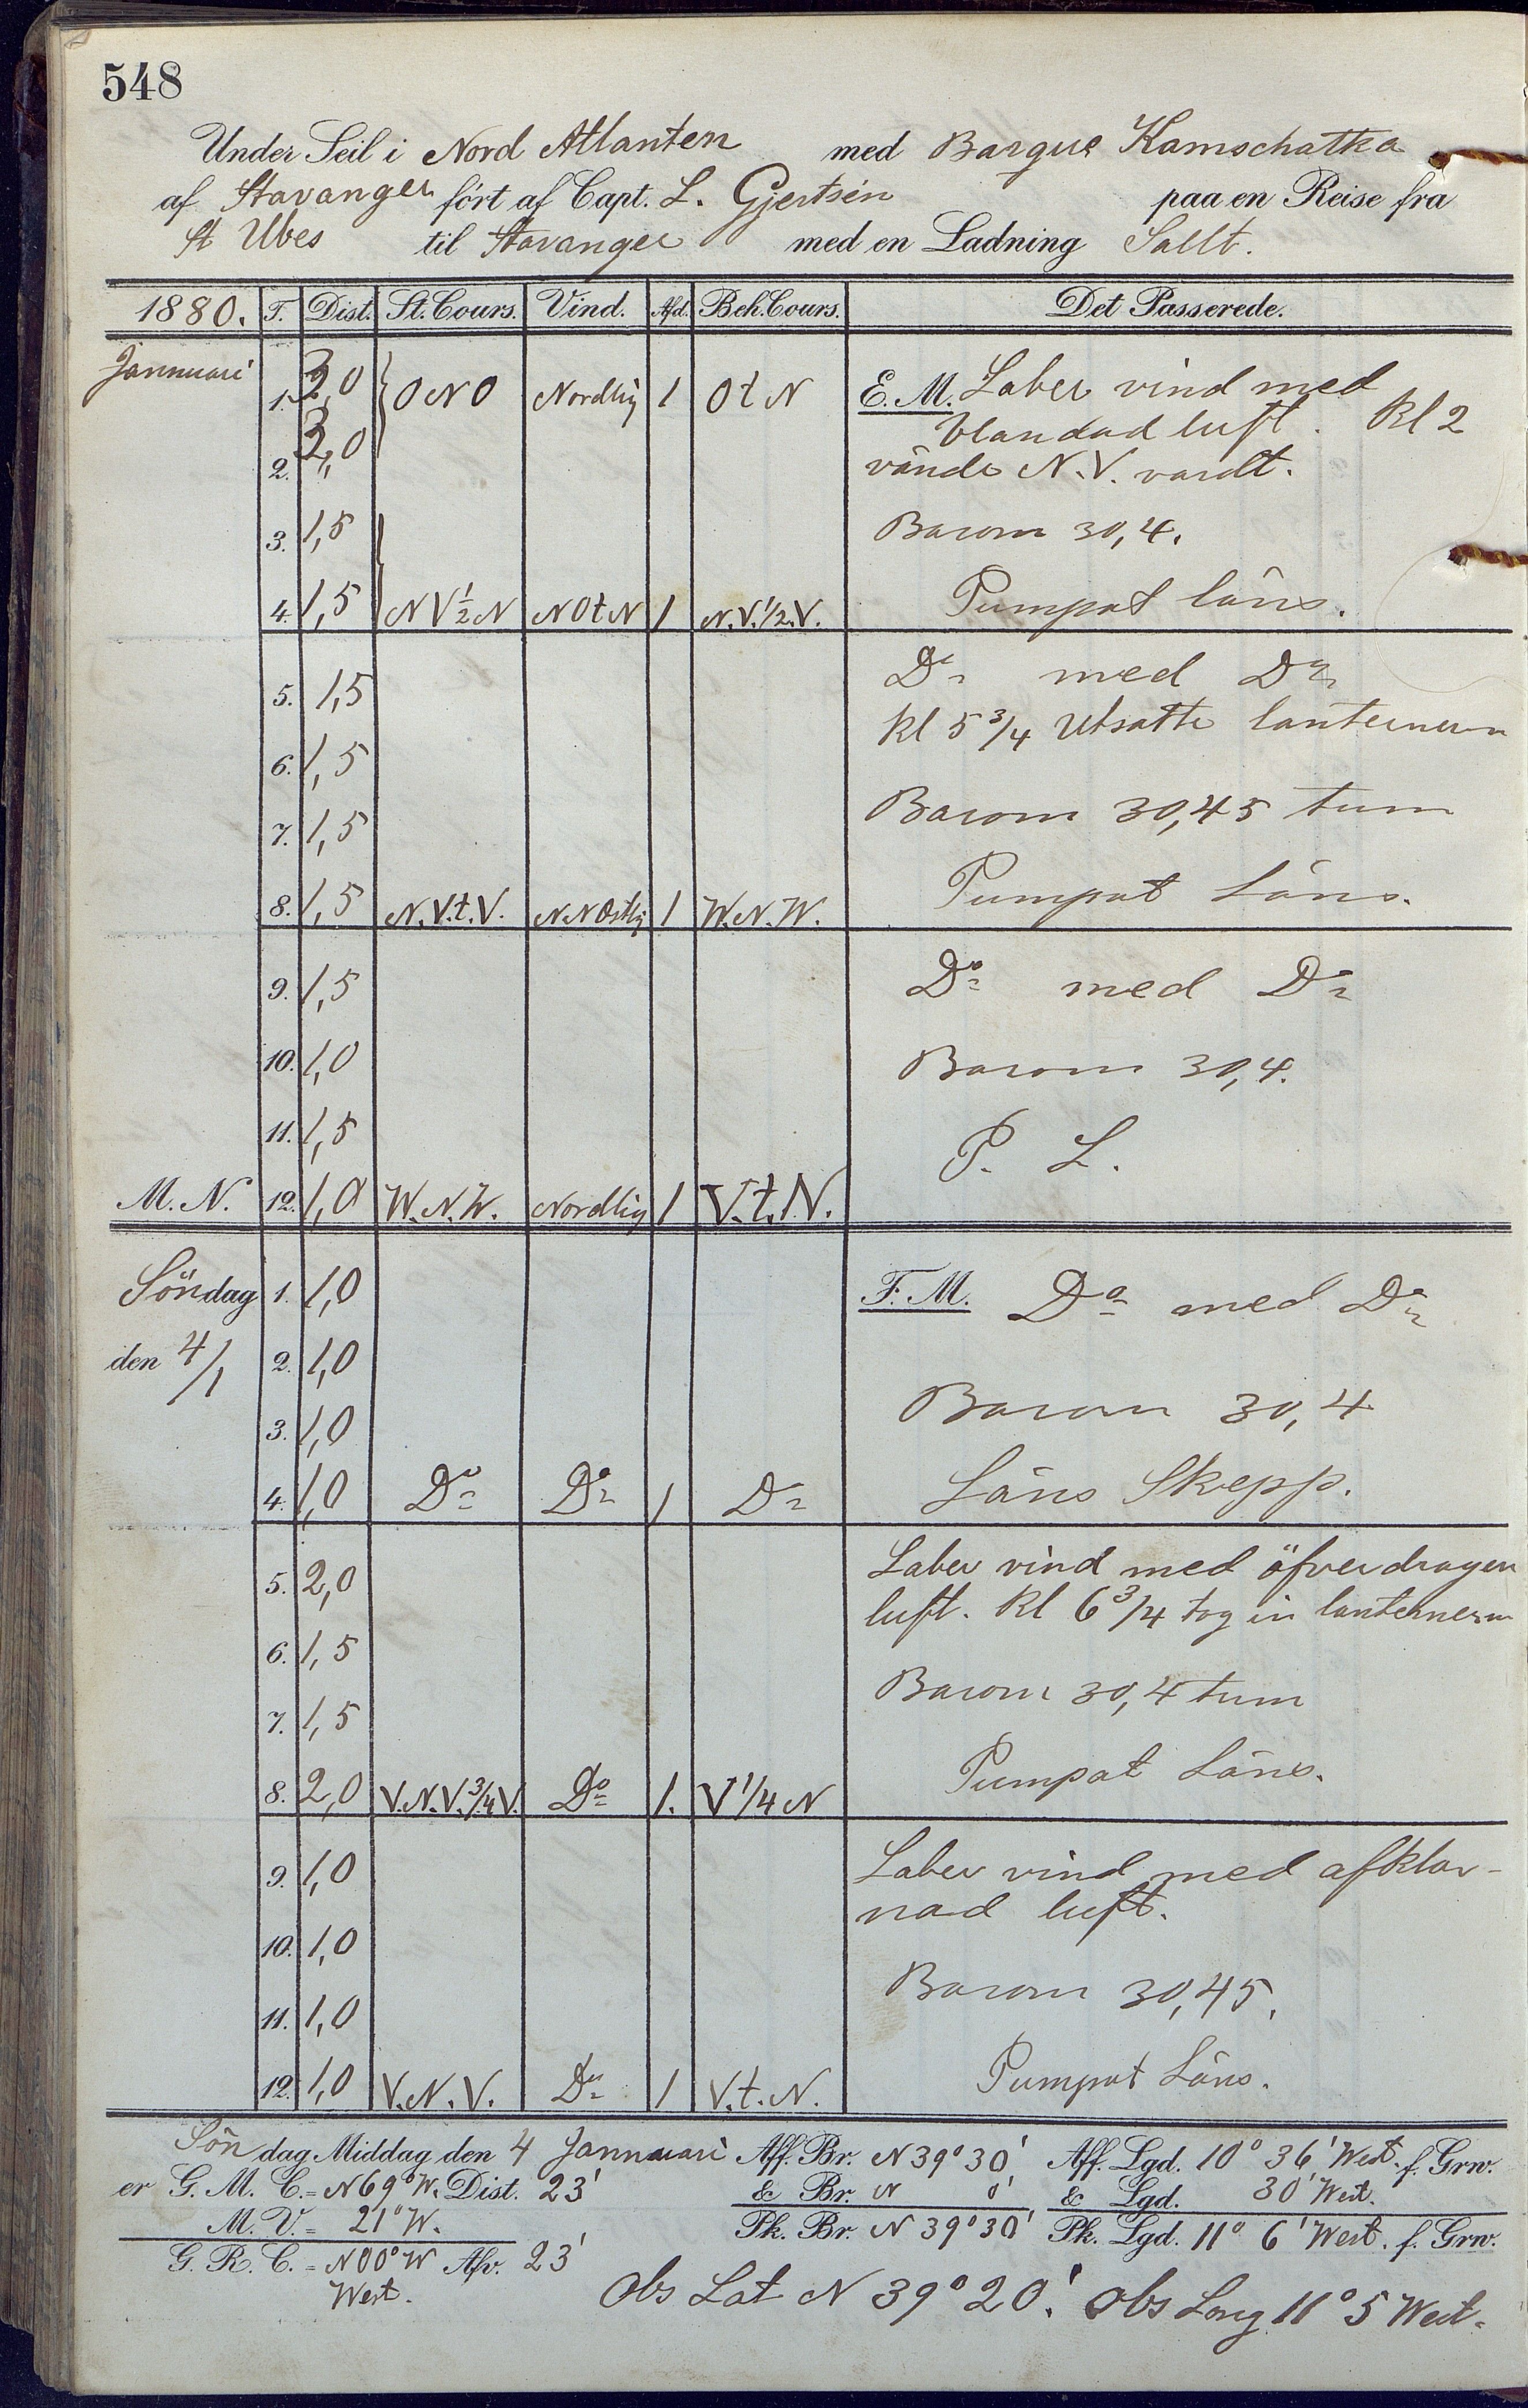 548
Under Seil i Nord Atlanten med Barque Kamschatka
af Stavanger fört af Capt. L. Gjertsen paa en Reise fra
St Ubes til Stavanger med en Ladning Sallt.
1880. T. Dist. St. Cours. Vind. Afd. Beh. Cours. Det Passerede.
Jannuari 1. 3,0 ONO Nordlig 1 OtN E. M. Laber vind med
blandad luft. Kl 2
2. 3,0 vände N.V. vardt.
3. 1,5 Barom 30,4.
4. 1,5 NV½N NOtN 1 N.V.1/2.V. Pumpat läns.
5. 1,5 Do med Do
Kl 5 3/4 Utsatte lanternern
6. 1,5
7. 1,5 Barom 30,45 tum
8. 1,5 N.V.t.V. N.NOstlig 1 W.N.W. Pumpat Läns.
9. 1,5 Do med Do
10. 1,0 Barom 30,4.
11. 1,5 P. L.
M. N. 12. 1,0 W.N.W. Nordlig 1 V.t.N.
Söndag 1. 1,0 F. M. Do med Do
den 4/1 2. 1,0
3. 1,0 Barom 30,4
4. 1,0 Do Do 1 Do Läns Skepp.
5. 2,0 Laber vind med öfverdragen
luft. Kl 6 3/4 tog in lanternern
6. 1,5
7. 1,5 Barom 30,4 tum
8. 2,0 V.N.V.3/4V. Do 1. V 1/4 N Pumpat Läns.
9. 1,0 Laber vind med afklar-
nad luft.
10. 1,0
11. 1,0 Barom 30,45.
12. 1,0 V.N.V. Do 1 V.t.N. Pumpat Läns.
Söndag Middag den 4 Jannuari Aff. Br. N 39° 30' Aff. Lgd. 10° 36' West. f. Grw.
er G. M. C. = N 69° W. Dist. 23' & Br. N 0' & Lgd. 30' West.
M. V. = 21° W. Pk. Br. N 39° 30' Pk. Lgd. 11° 6' West. f. Grw.
G. R. C. = N 00° W Afv. 23'
West. Obs Lat N 39° 20'. Obs Long 11° 5 West.